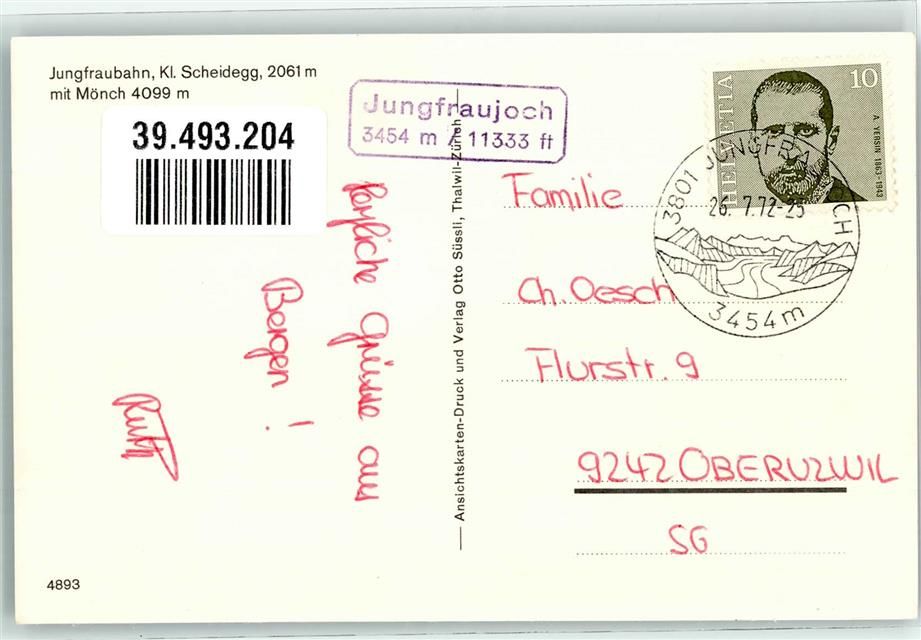 Jungfraubahn, Kl. Scheidegg, 2061 m
mit Mönch 4099 m
39.493.204
Jungfraujoch
3454 m / 11333 ft
HELVETIA
10
A. YERSIN 1863-1943
3801 JUNGFRAUJOCH
26. 7.72-25
3454 m
Herzliche Grüsse aus
Bergen !
Ruth
Ansichtskarten-Druck und Verlag Otto Süssli, Thalwil-Zürich
Familie
Ch. Oesch
Flurstr. 9
9242 OBERUZWIL
SG
4893